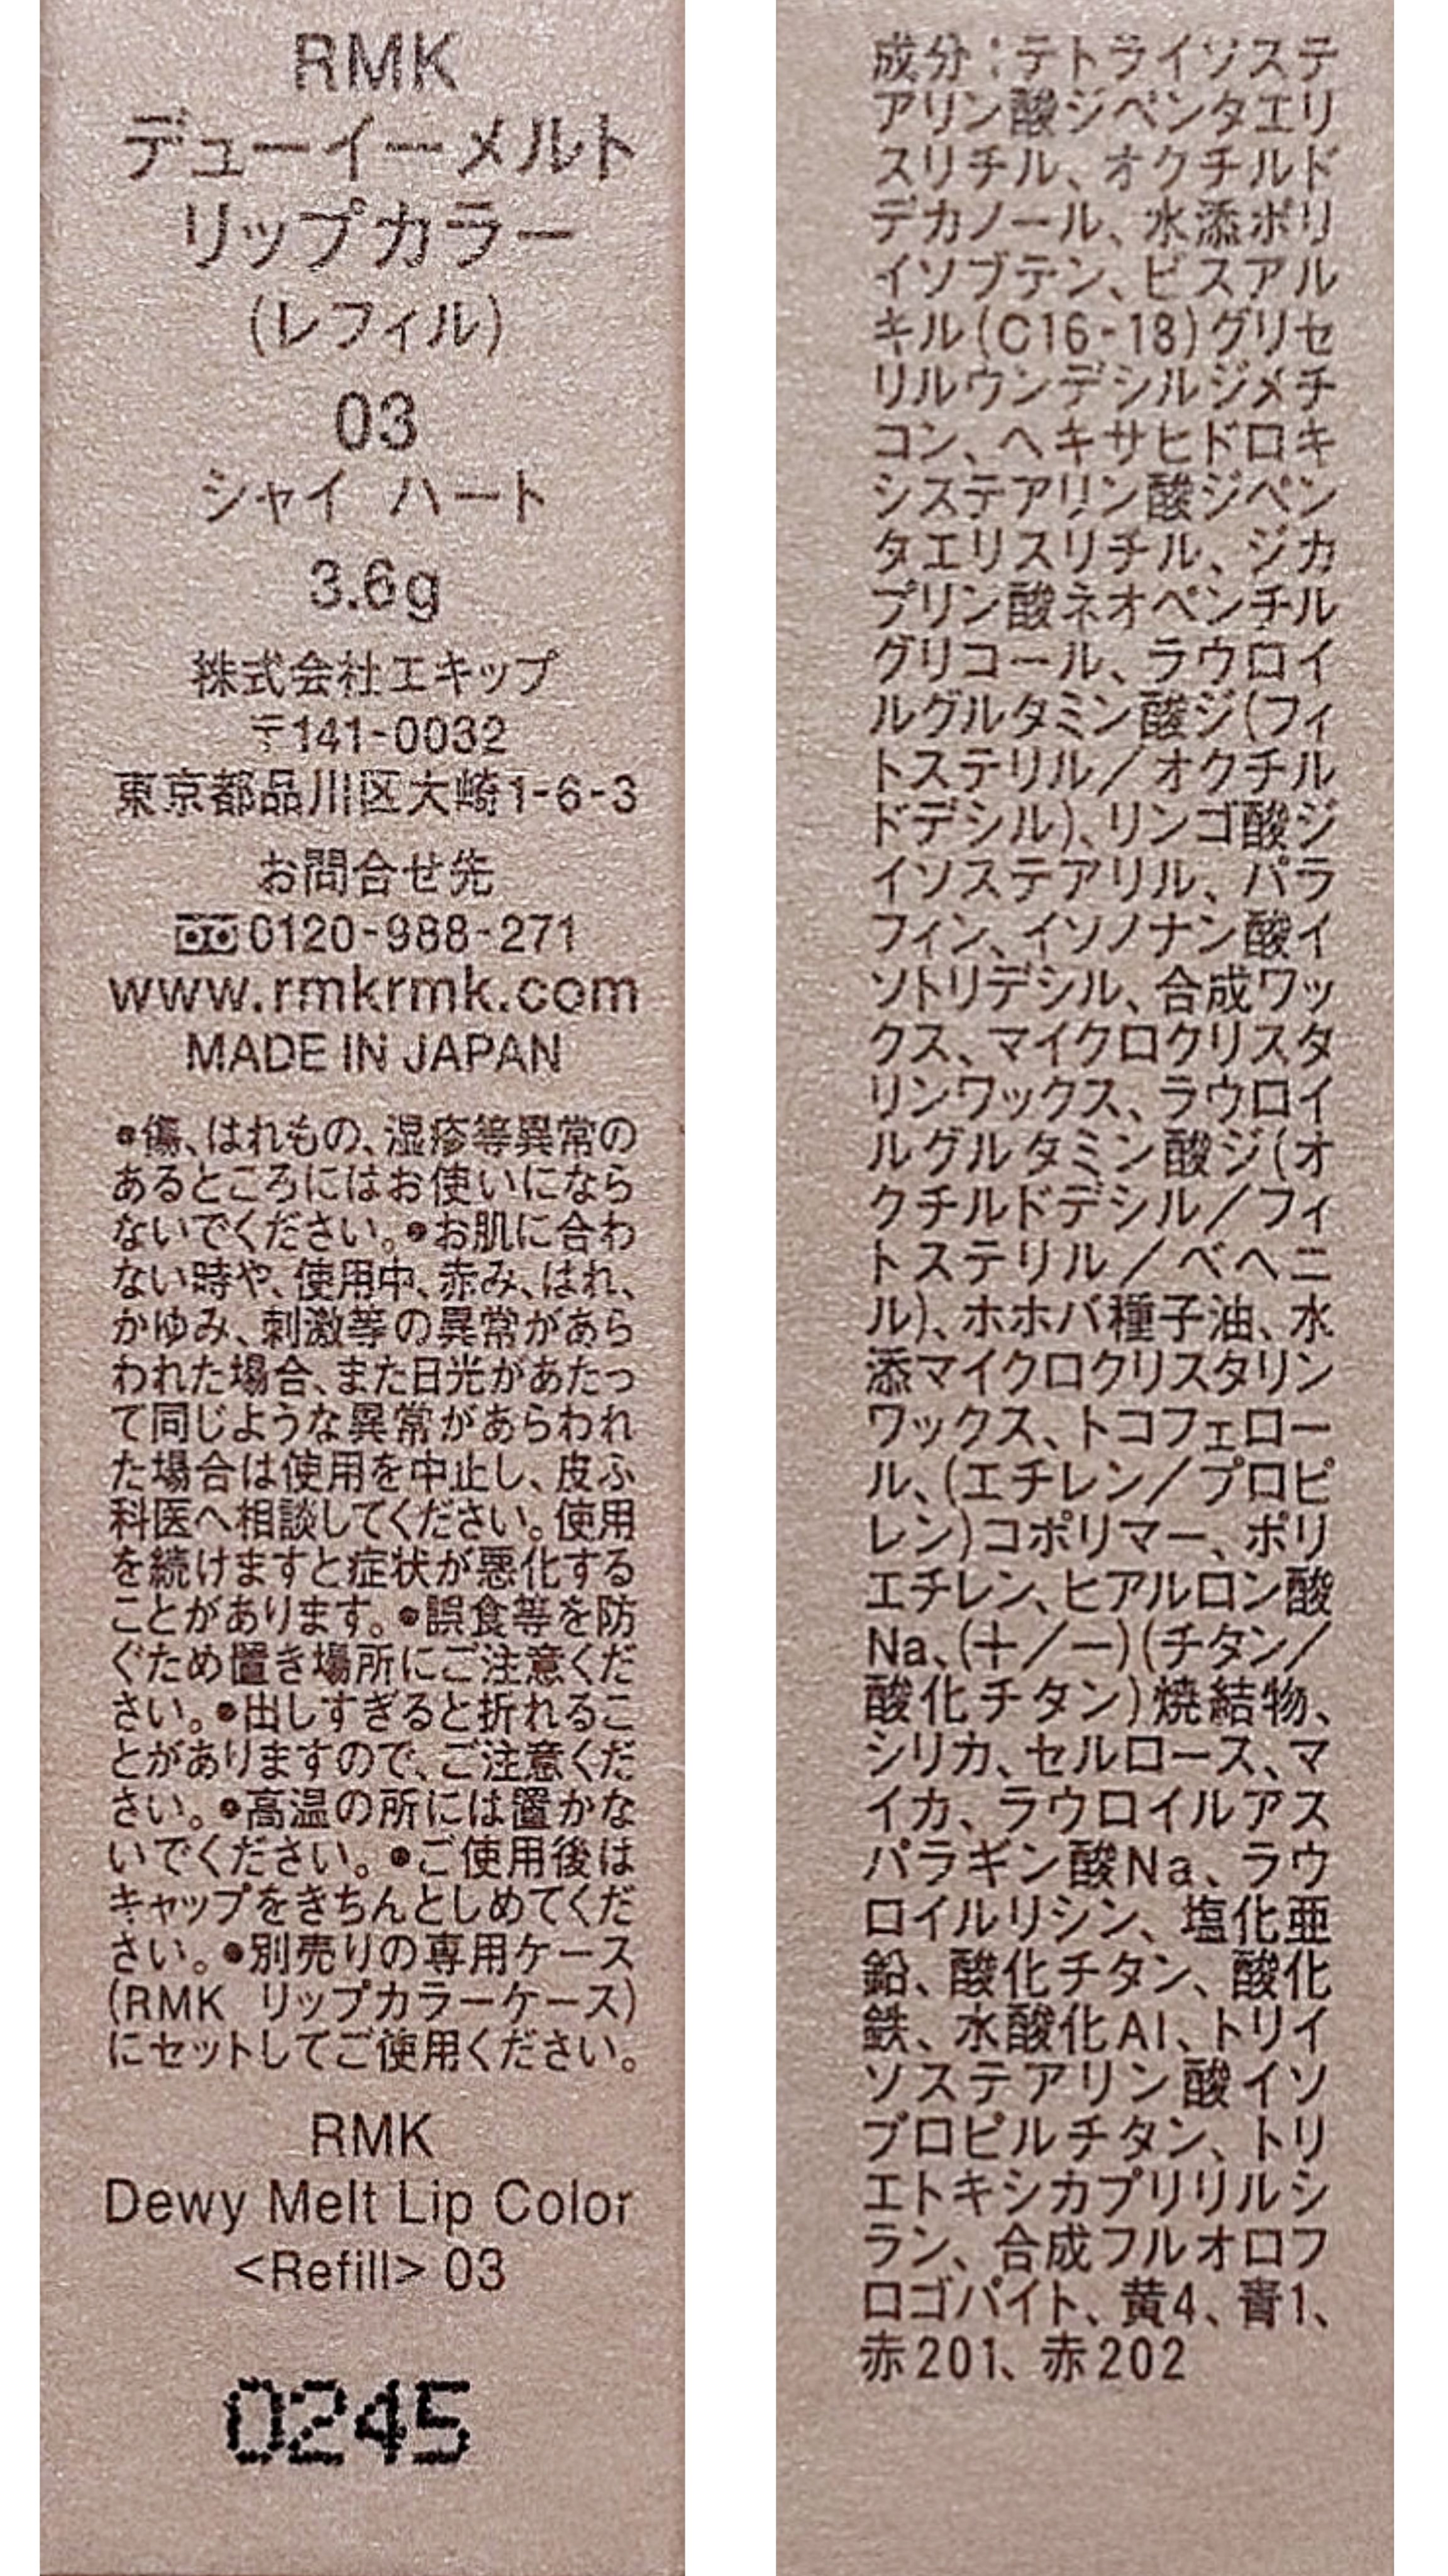 RMK
デューイーメルト
リップカラー
(レフィル)
03
シャイ ハート
3.6g
株式会社エキップ
〒141-0032
東京都品川区大崎1-6-3
お問合せ先
0120-988-271
www.rmkrmk.com
MADE IN JAPAN
●傷、はれもの、湿疹等異常の
あるところにはお使いになら
ないでください。●お肌に合わ
ない時や、使用中、赤み、はれ、
かゆみ、刺激等の異常があら
われた場合、また日光があたっ
て同じような異常があらわれ
た場合は使用を中止し、皮ふ
科医へ相談してください。使用
を続けますと症状が悪化する
ことがあります。●誤食等を防
ぐため置き場所にご注意くだ
さい。●出しすぎると折れるこ
とがありますので、ご注意くだ
さい。●高温の所には置かな
いでください。●ご使用後は
キャップをきちんとしめてくだ
さい。●別売りの専用ケース
(RMK リップカラーケース)
にセットしてご使用ください。
RMK
Dewy Melt Lip Color
<Refill> 03
0245
成分:テトライソステ
アリン酸ジペンタエリ
スリチル、オクチルド
デカノール、水添ポリ
イソブテン、ビスアル
キル(C16-18)グリセ
リルウンデシルジメチ
コン、ヘキサヒドロキ
システアリン酸ジペン
タエリスリチル、ジカ
プリン酸ネオペンチル
グリコール、ラウロイ
ルグルタミン酸ジ(フィ
トステリル/オクチル
ドデシル)、リンゴ酸ジ
イソステアリル、パラ
フィン、イソノナン酸イ
ソトリデシル、合成ワッ
クス、マイクロクリスタ
リンワックス、ラウロイ
ルグルタミン酸ジ(オ
クチルドデシル/フィ
トステリル/ベヘニ
ル)、ホホバ種子油、水
添マイクロクリスタリン
ワックス、トコフェロー
ル、(エチレン/プロピ
レン)コポリマー、ポリ
エチレン、ヒアルロン酸
Na、(+/-)(チタン/
酸化チタン)焼結物、
シリカ、セルロース、マ
イカ、ラウロイルアス
パラギン酸Na、ラウ
ロイルリシン、塩化亜
鉛、酸化チタン、酸化
鉄、水酸化Al、トリイ
ソステアリン酸イソ
プロピルチタン、トリ
エトキシカプリリルシ
ラン、合成フルオロフ
ロゴパイト、黄4、青1、
赤201、赤202